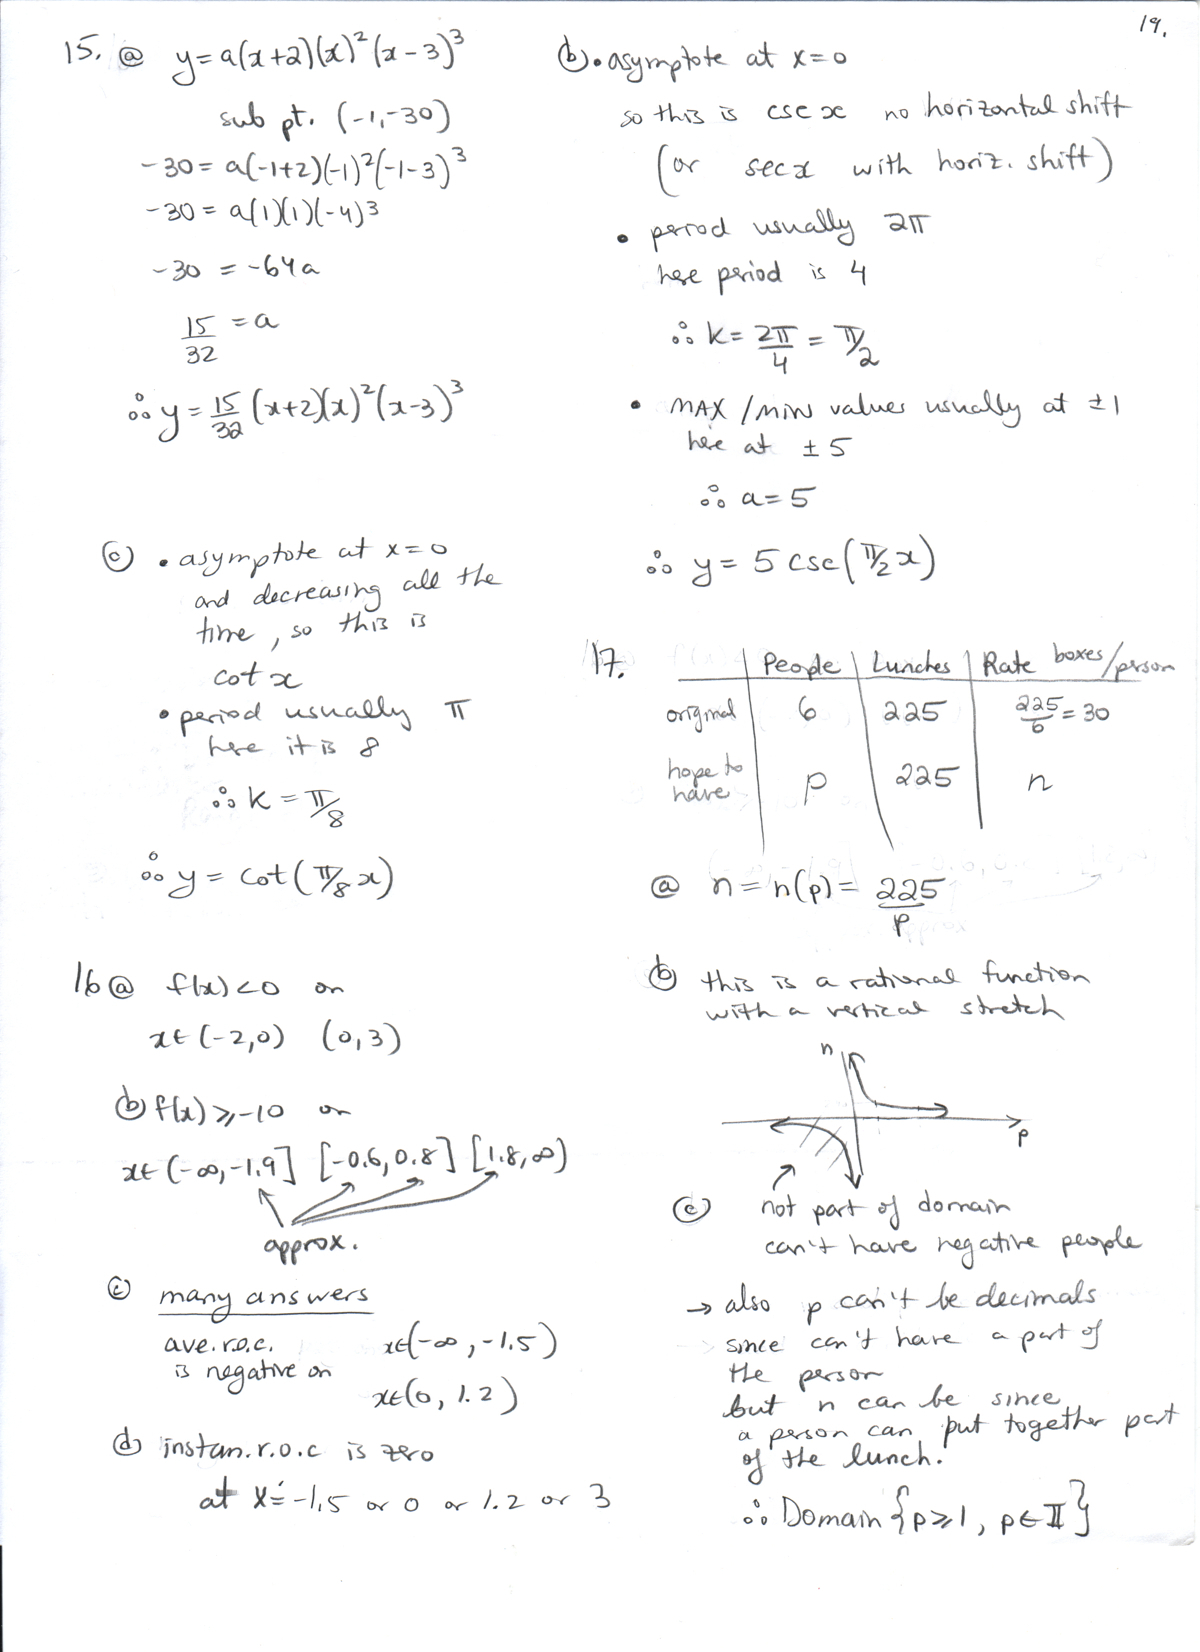 19.
15. ⓐ y = a(x+2)(x)²(x-3)³
sub pt. (-1,-30)
-30 = a(-1+2)(-1)²(-1-3)³
-30 = a(1)(1)(-4)³
-30 = -64a
15/32 = a
∴ y = 15/32 (x+2)(x)²(x-3)³
ⓑ • asymptote at x=0
so this is csc x no horizontal shift
(or sec x with horiz. shift)
• period usually 2π
here period is 4
∴ k = 2π/4 = π/2
• MAX/MIN values usually at ±1
here at ±5
∴ a=5
∴ y = 5 csc(π/2 x)
ⓒ • asymptote at x=0
and decreasing all the
time, so this is
cot x
• period usually π
here it is 8
∴ k = π/8
∴ y = cot(π/8 x)
16 ⓐ f(x)<0 on
x∈(-2,0) (0,3)
ⓑ f(x)⩾-10 on
x∈(-∞,-1.9] [-0.6,0.8] [1.8,∞)
approx.
ⓒ many answers
ave.r.o.c. x∈(-∞,-1.5)
is negative on x∈(0,1.2)
ⓓ instan.r.o.c is zero
at x≐-1.5 or 0 or 1.2 or 3
17. People Lunches Rate boxes/person
original 6 225 225/6 = 30
hope to have p 225 n
ⓐ n = n(p) = 225/p
ⓑ this is a rational function
with a vertical stretch
n
p
ⓒ not part of domain
can't have negative people
→ also p can't be decimals
since can't have a part of
the person
but n can be since
a person can put together part
of the lunch.
∴ Domain {p⩾1, p∈I}